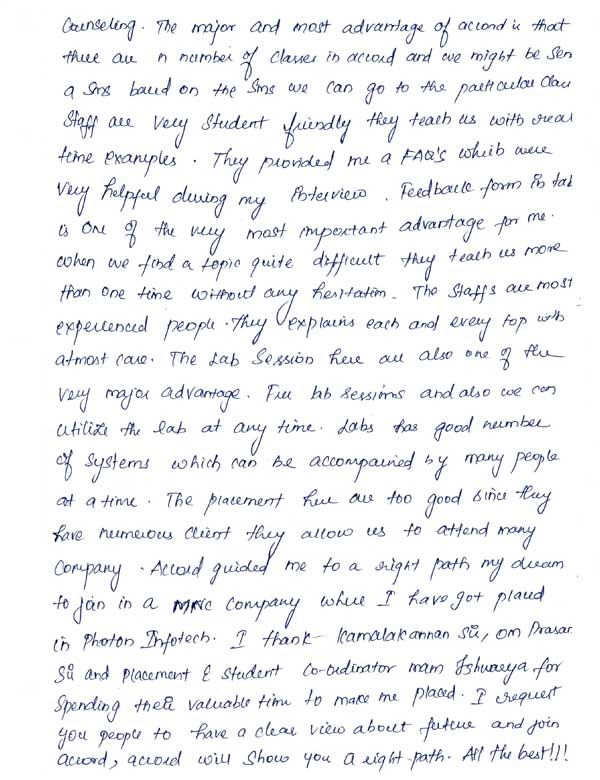 Counseling. The major and most advantage of accord is that
there are n number of classes in accord and we might be sen
a sms based on the sms we can go to the particular class
Staff are very student friendly they teach us with real
time examples. They provided me a FAQ's which were
very helpful during my Interview. Feedback form in lab
is one of the very most important advantage for me.
when we find a topic quite difficult they teach us more
than one time without any hesitation. The Staffs are most
experienced people. They explains each and every top with
atmost care. The Lab Session here are also one of the
very major advantage. Free lab sessions and also we can
utilize the lab at any time. Labs has good number
of systems which can be accompained by many people
at a time. The placement here are too good since they
have numerous client they allow us to attend many
company. Accord guided me to a right path my dream
to join in a MNC company where I have got placed
in Photon Infotech. I thank Kamalakannan Sir, Om Prasar
Sir and placement & student Co-ordinator mam Ishwarya for
spending their valuable time to make me placed. I request
you people to have a clear view about future and join
accord, accord will show you a right path. All the best!!!